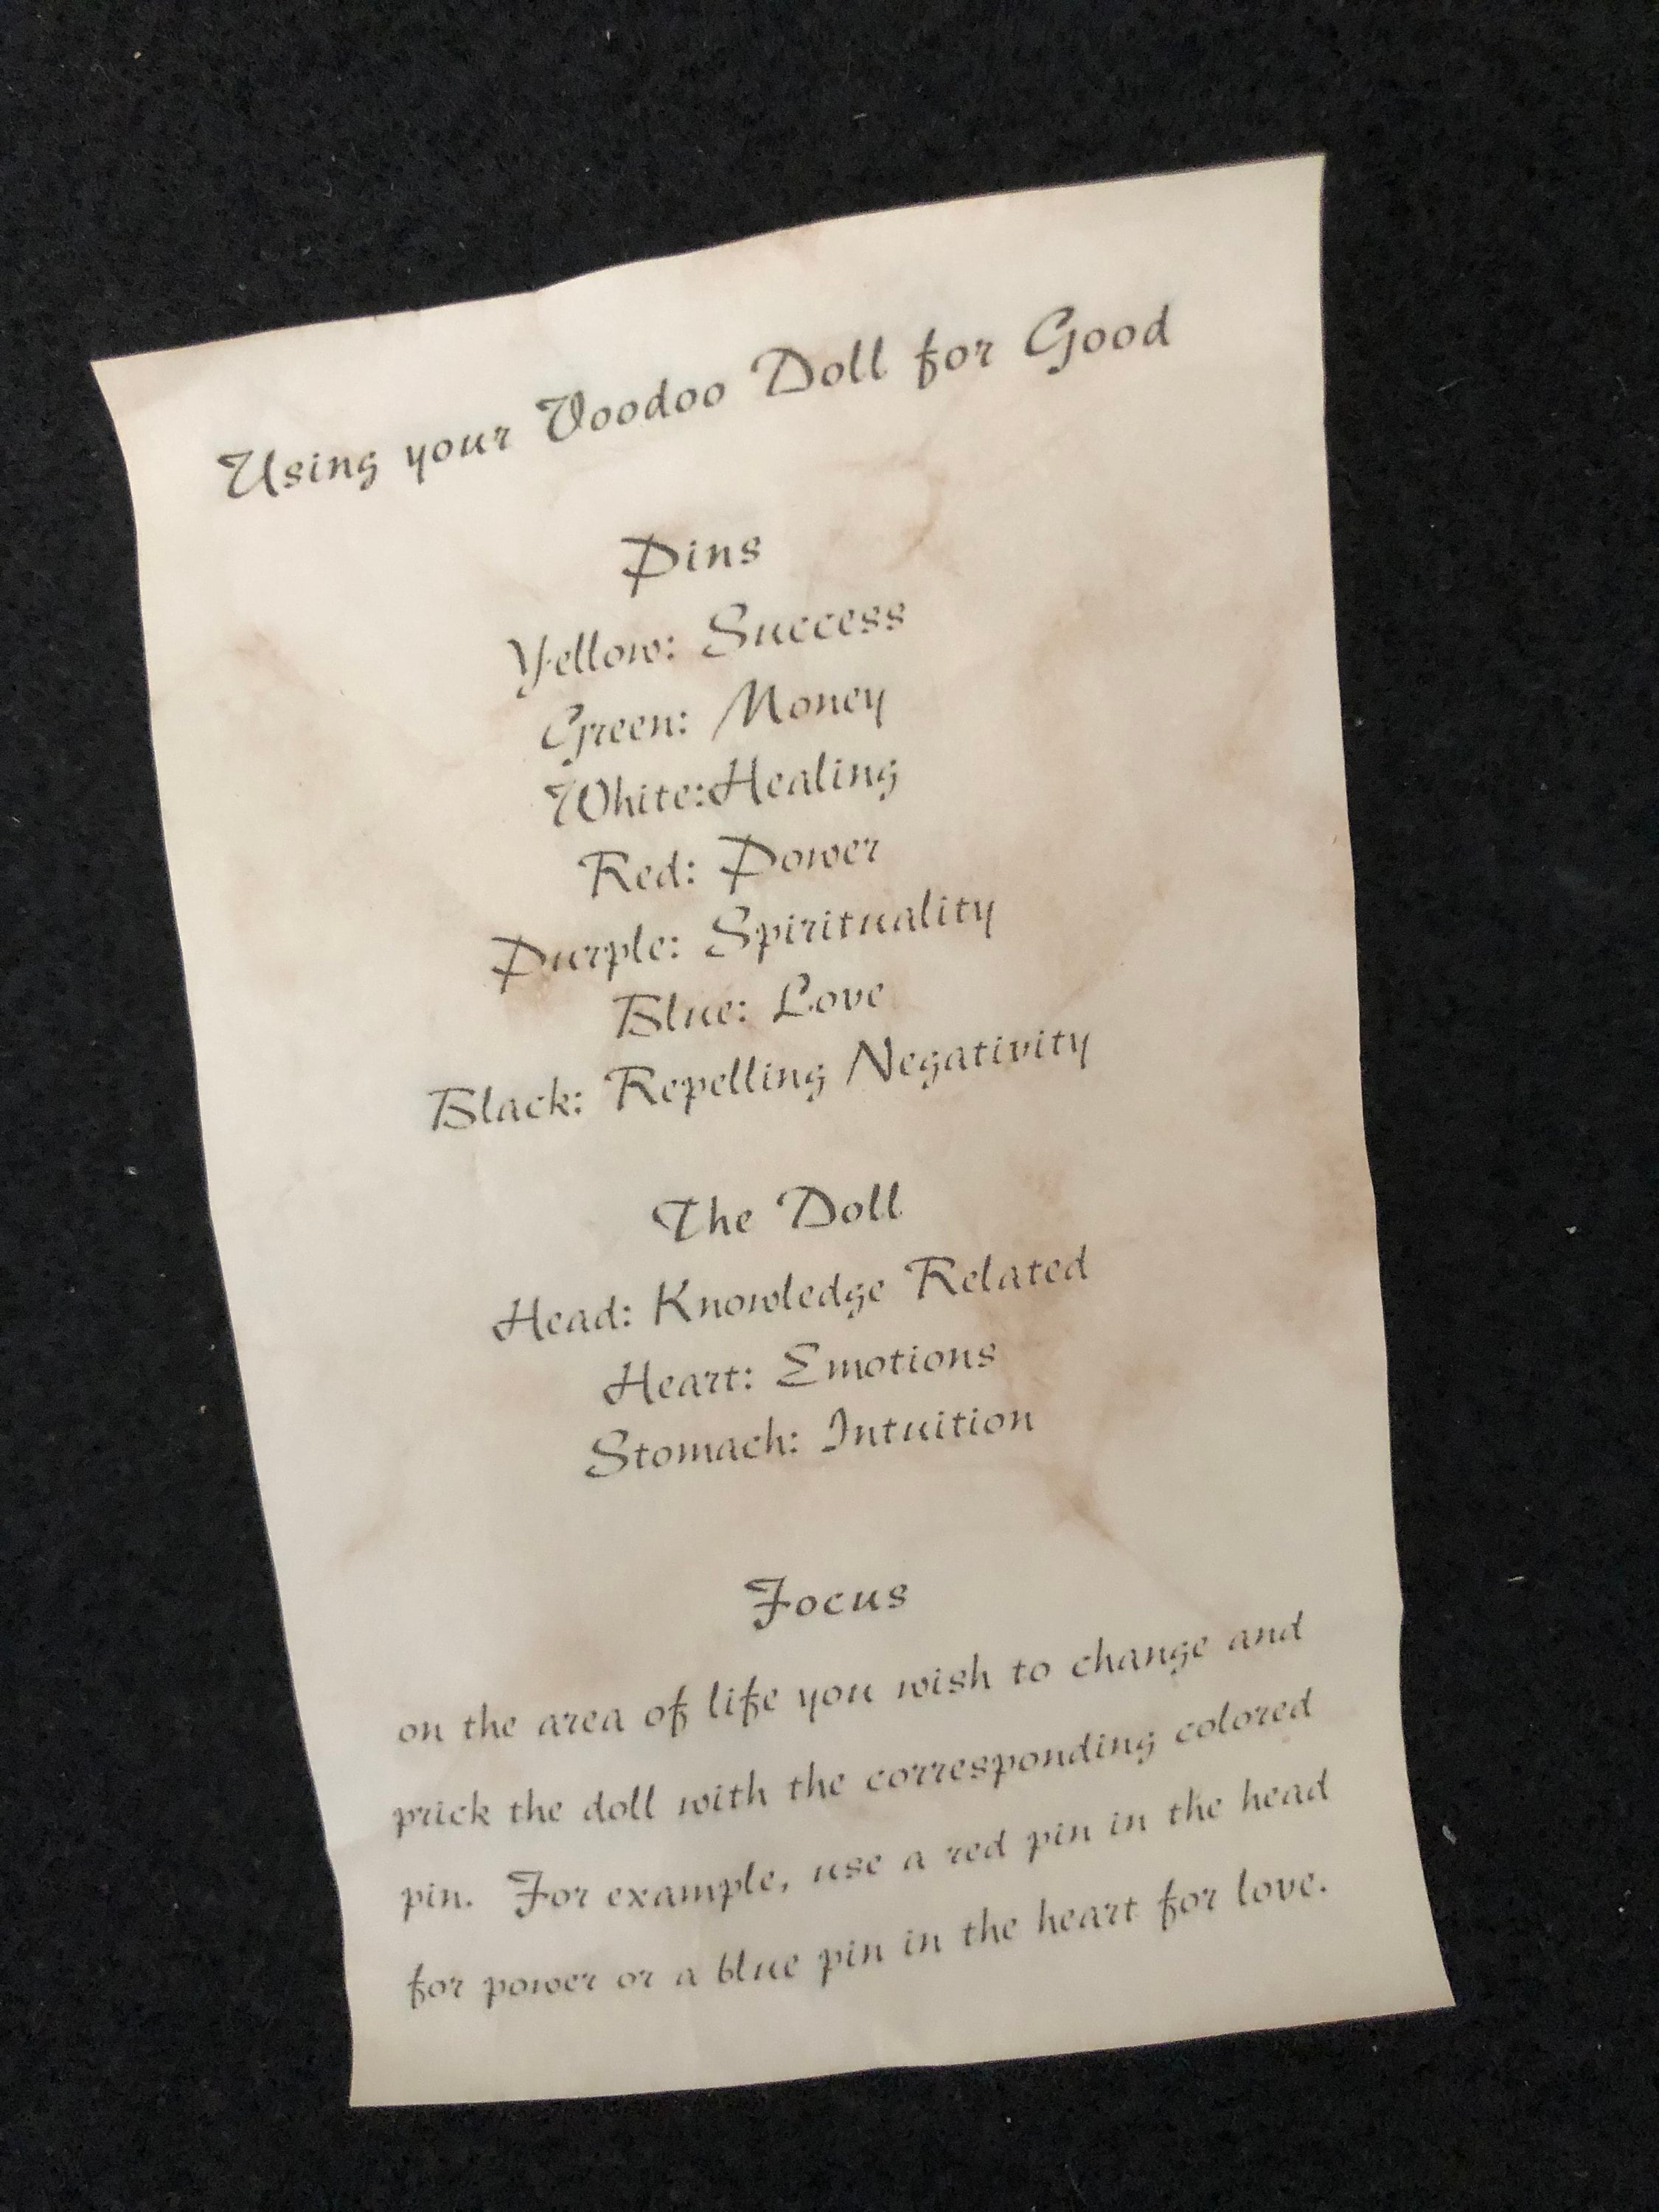 Using your Voodoo Doll for Good
Pins
Yellow: Success
Green: Money
White:Healing
Red: Power
Purple: Spirituality
Blue: Love
Black: Repelling Negativity
The Doll
Head: Knowledge Related
Heart: Emotions
Stomach: Intuition
Focus
on the area of life you wish to change and
prick the doll with the corresponding colored
pin. For example, use a red pin in the head
for power or a blue pin in the heart for love.